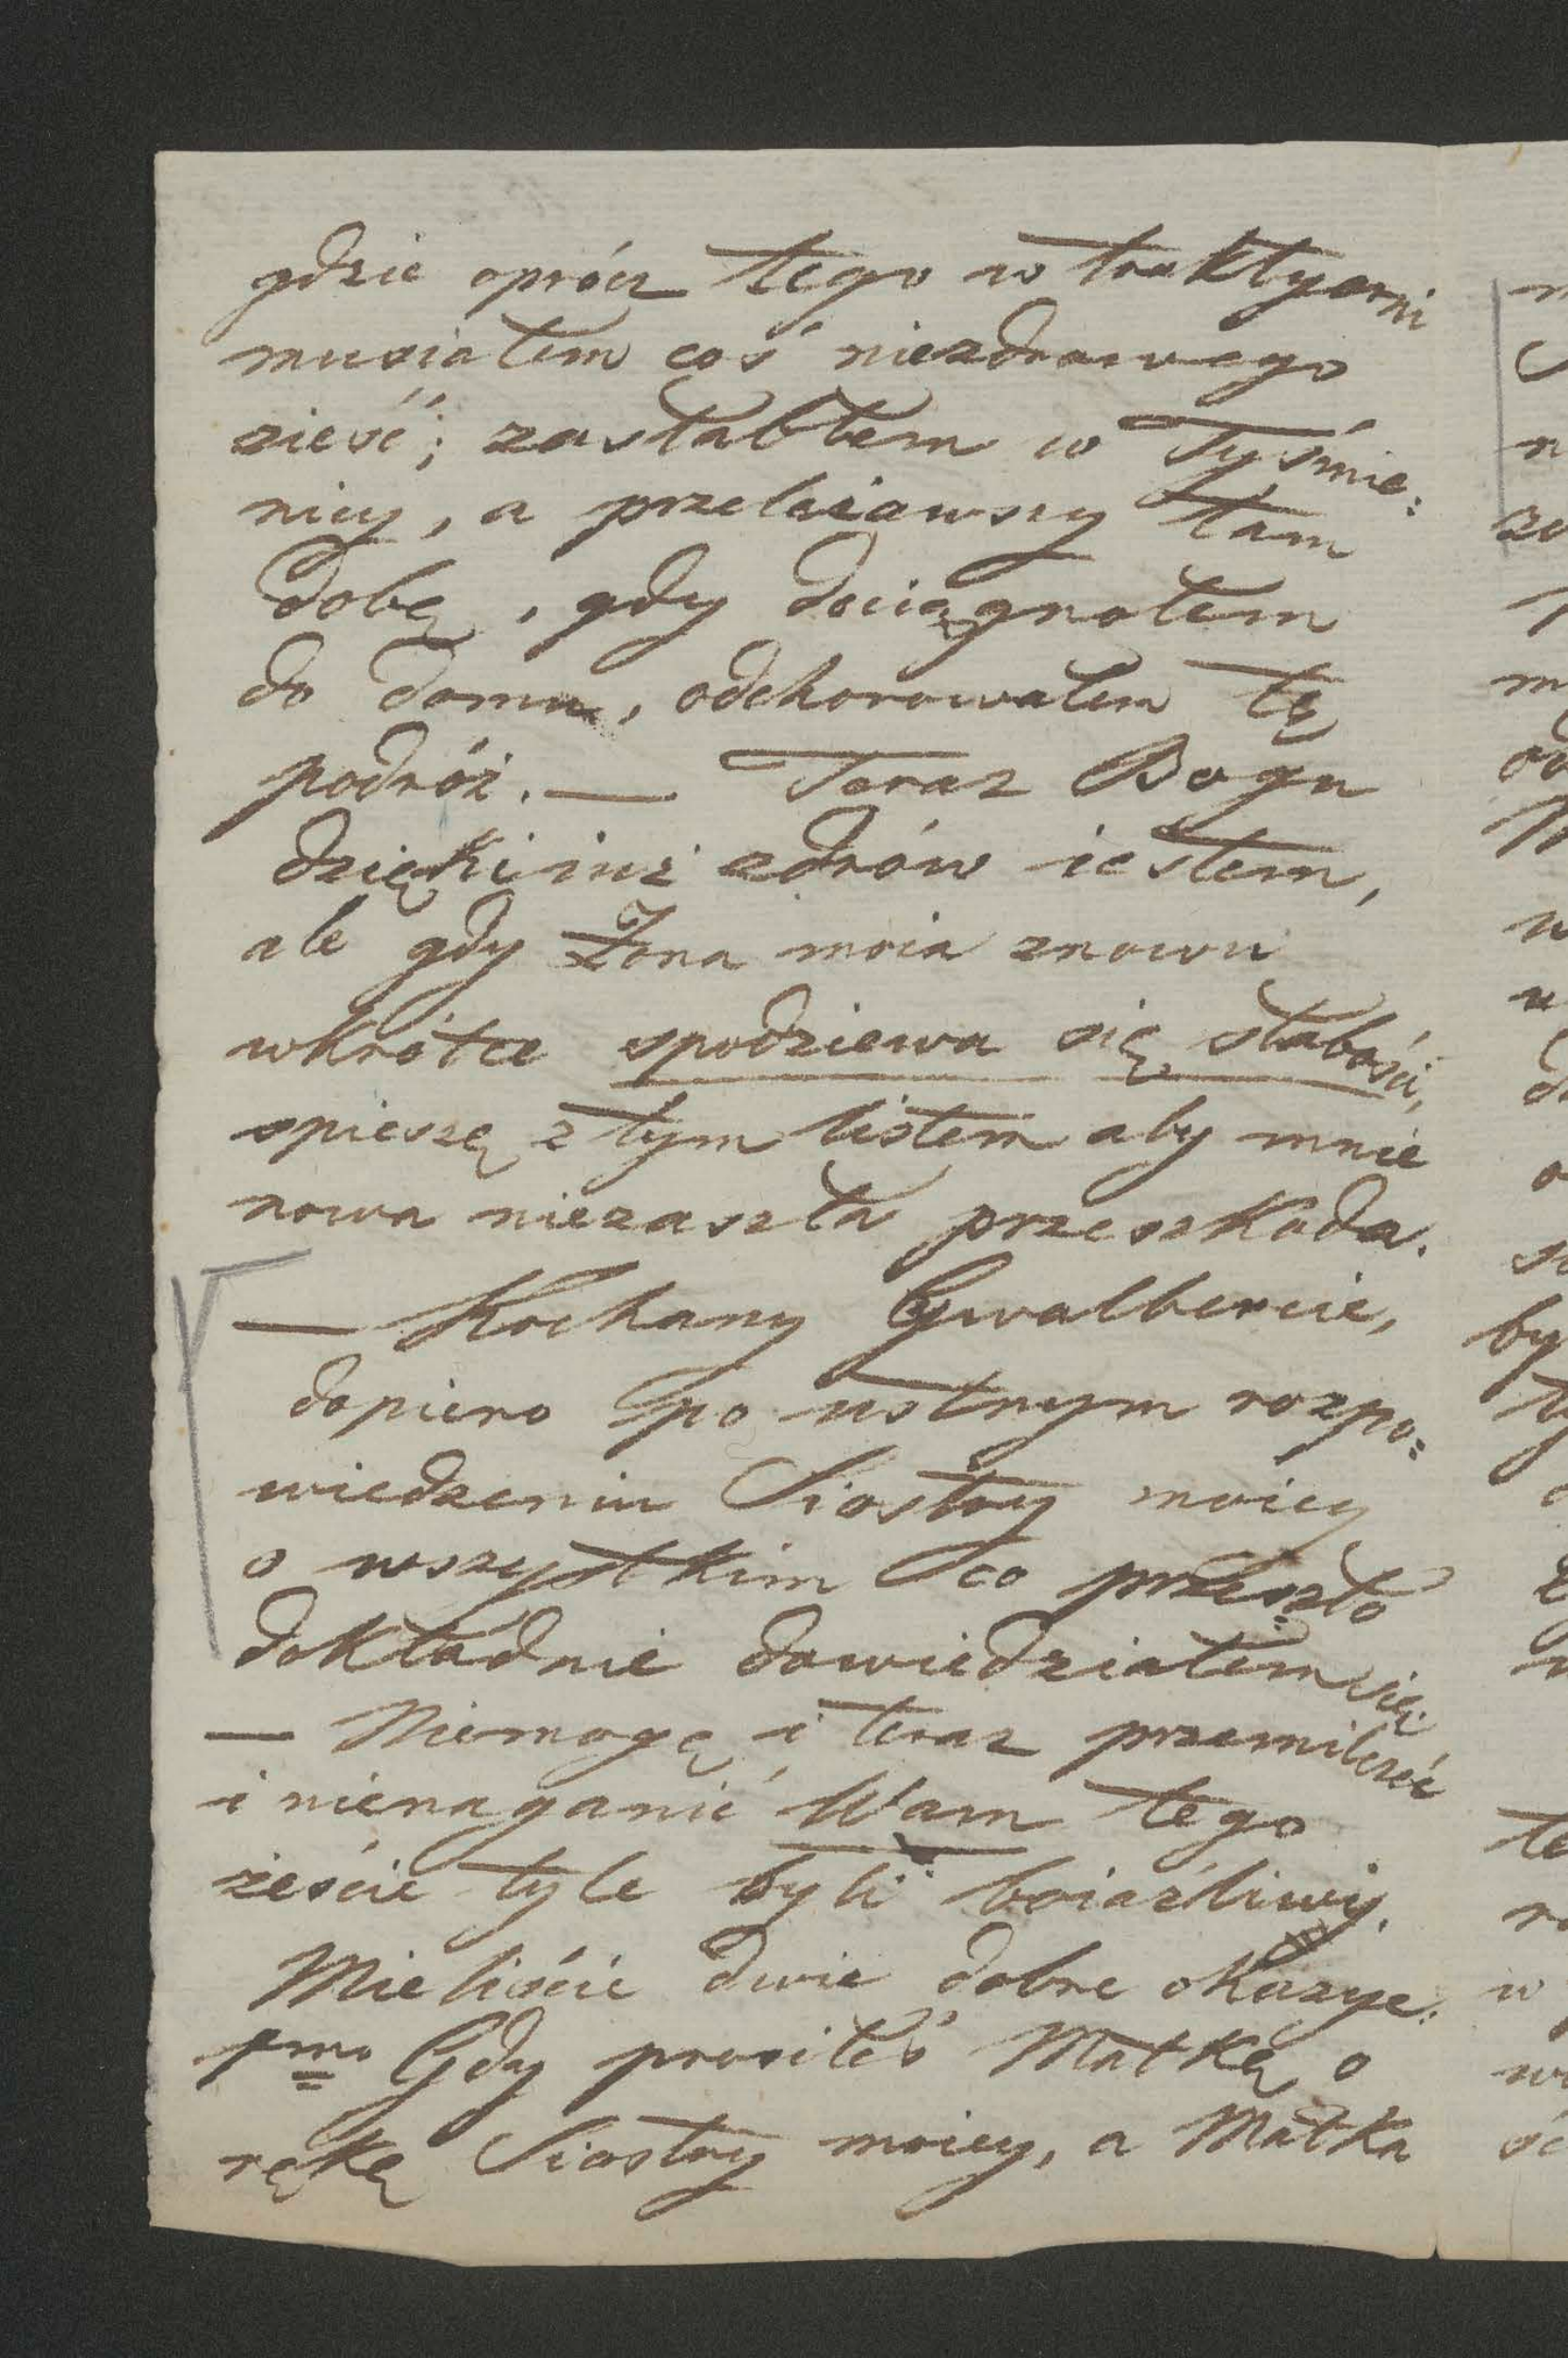 gdzie oprócz tego w traktyerni
musiałem coś niezdrowego
zieść; zasłabłem w Tyśmie:
nicy, a przeleżawszy tam
dobę, gdy dociągnołem
do domu, odchorowałem tę
podróż. — Teraz Bogu
dzięki iuż zdrów iestem,
ale gdy Żona moia znowu
wkrótce spodziewa się słabości,
spieszę z tym listem aby mnie
nowa niezaszła przeszkoda.
— Kochany Gwalbercie,
dopiero po ustnym rozpo:
wiedzeniu Siostry moiey
o wszystkim co przeszło
dokładnie dowiedziałem się.
— Niemogę i teraz przemilczeć
i nienaganić Wam tego
żeście tyle byli boiaźliwy.
Mieliście dwie dobre okazye.
1mo Gdy prosiłeś Matkę o
rękę Siostry moiey, a Matka